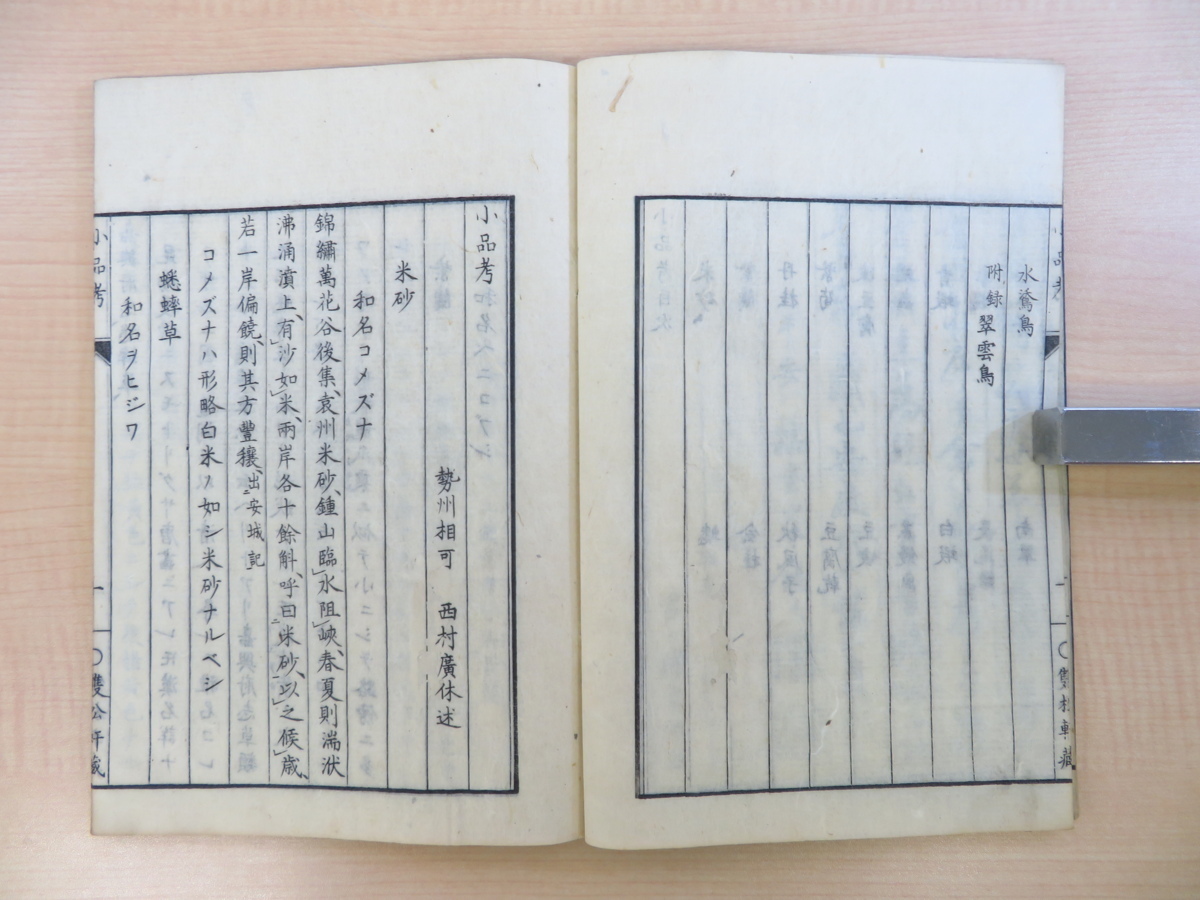 水鶿鳥
附録 翠雲鳥
小品考
勢州相可 西村廣休述
米砂
和名コメズナ
錦繡萬花谷後集、袁州米砂、鍾山臨水阻峽、春夏則湍洑
沸涌濆上、有沙如米、兩岸各十餘斛、呼曰米砂、以之候歲、
若一岸偏饒、則其方豐穰、出安城記
コメズナハ形略白米ノ如シ米砂ナルベシ
蟋蟀草
和名ヲヒジワ
小品考
一